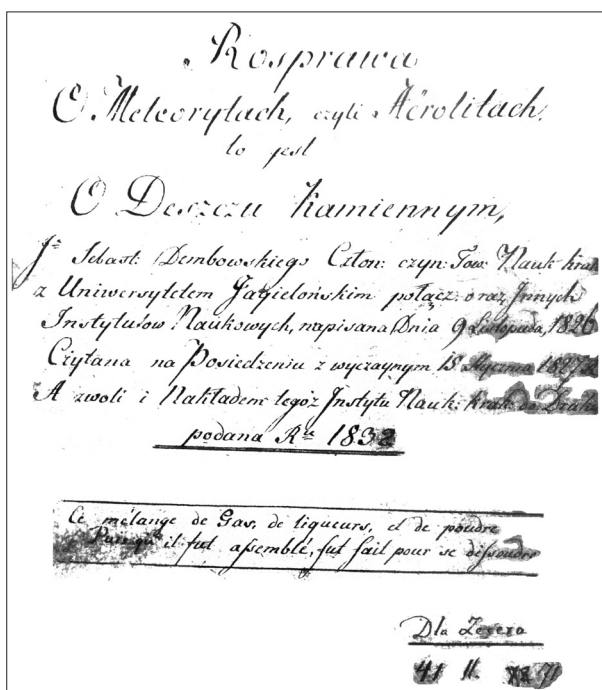 Rosprawa
O Meteorytach, czyli Aërolitach,
to jest
O Deszczu Kamiennym,
Jª Sebast: Dembowskiego Człon: czyn: Tow: Nauk krak
z Uniwersytetem Jagielońskim połącz: oraz Innych
Instytutów Naukowych, napisana Dnia 9 Listopada, 1826
Czytana na Posiedzeniu zwyczaynym 15 Stycznia 1827
A zwoli i Nakładem tegoż Instytu Nauk: krak: do Druku
podana Rᵘ 1832
Ce mélange de Gas, de liqueurs, et de poudre
il fut assemblé, fut fait pour se dissoudre
Dla
41 11.